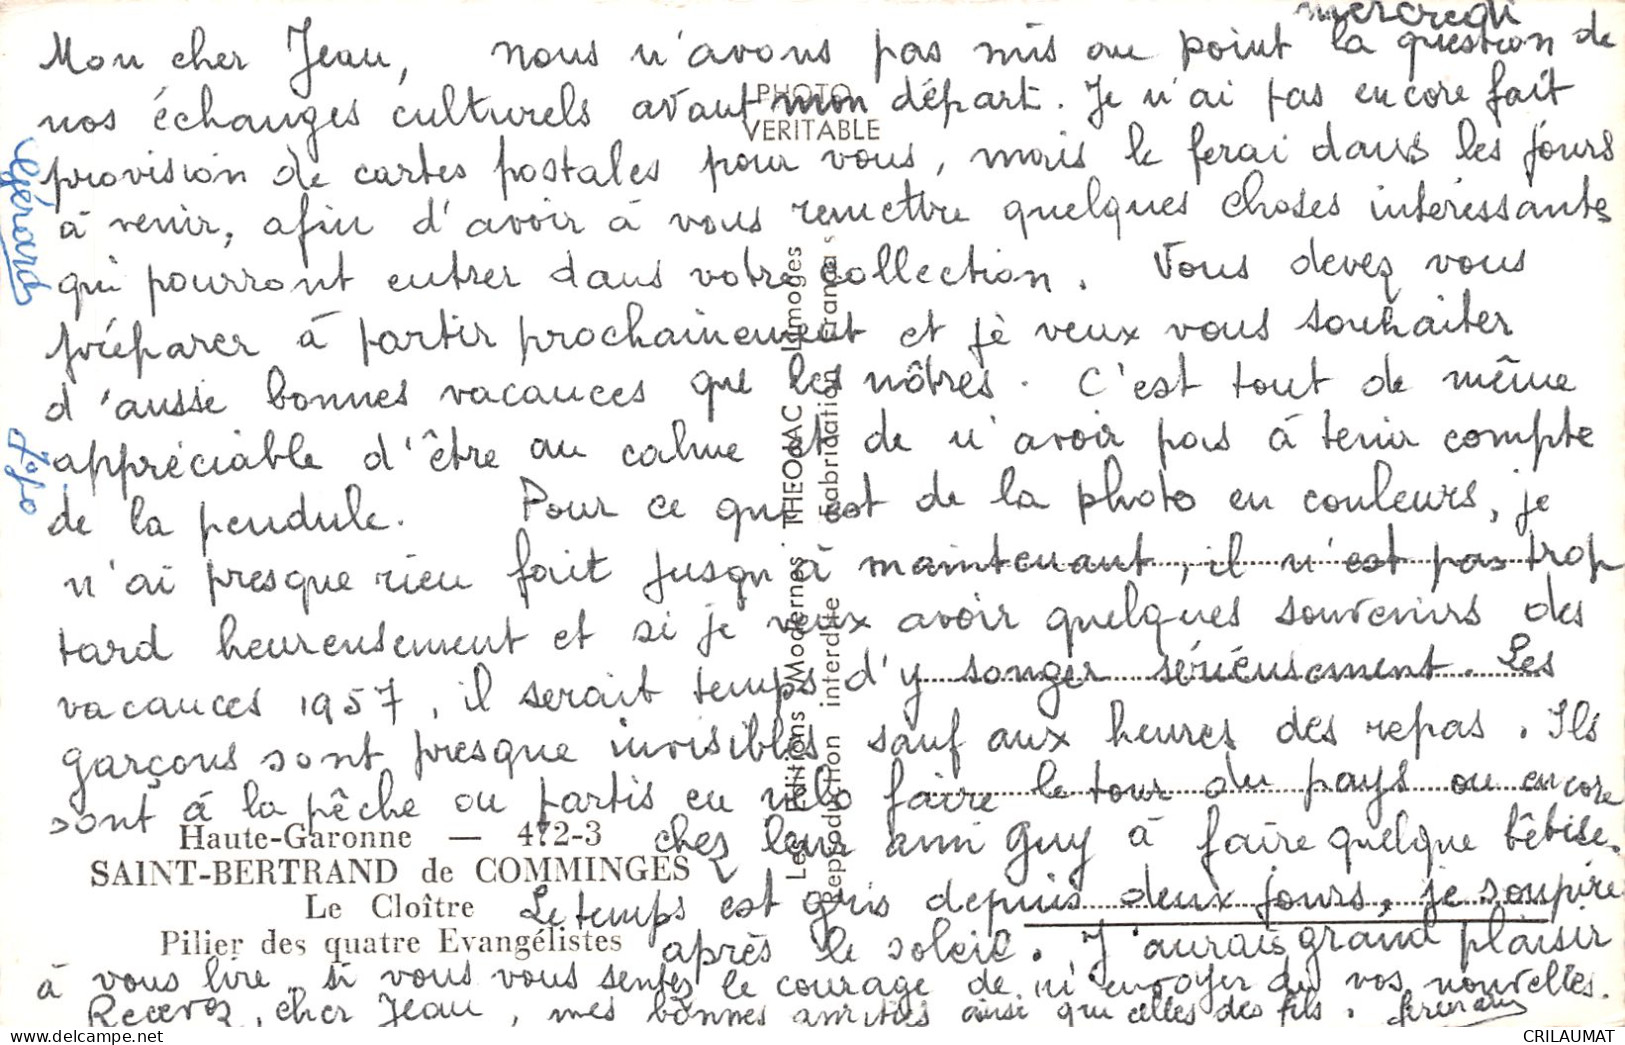 mercredi
Mon cher Jean, nous n'avons pas mis au point la question de
nos échanges culturels avant mon départ. Je n'ai pas encore fait
provision de cartes postales pour vous, mais le ferai dans les jours
à venir, afin d'avoir à vous remettre quelques choses intéressants
qui pourront entrer dans votre collection. Vous devez vous
préparer à partir prochainement et je veux vous souhaiter
d'aussi bonnes vacances que les nôtres. C'est tout de même
appréciable d'être au calme et de n'avoir pas à tenir compte
de la pendule. Pour ce qui est de la photo en couleurs, je
n'ai presque rien fait jusqu'à maintenant, il n'est pas trop
tard heureusement et si je veux avoir quelques souvenirs des
vacances 1957, il serait temps d'y songer sérieusement. Les
garçons sont presque invisibles sauf aux heures des repas. Ils
sont à la pêche ou partis en vélo faire le tour du pays ou encore
chez leur ami Guy à faire quelque bêtise.
Le temps est gris depuis deux jours, je soupire
après le soleil. J'aurais grand plaisir
à vous lire, si vous vous sentez le courage de m'envoyer de vos nouvelles.
Recevez, cher Jean, mes bonnes amitiés ainsi que celles des fils.
Gérard
Jojo
PHOTO
VERITABLE
Les Editions Modernes THEOJAC Limoges
Reproduction interdite Fabrication Française
Haute-Garonne — 472-3
SAINT-BERTRAND de COMMINGES
Le Cloître
Pilier des quatre Evangélistes
CRILAUMAT